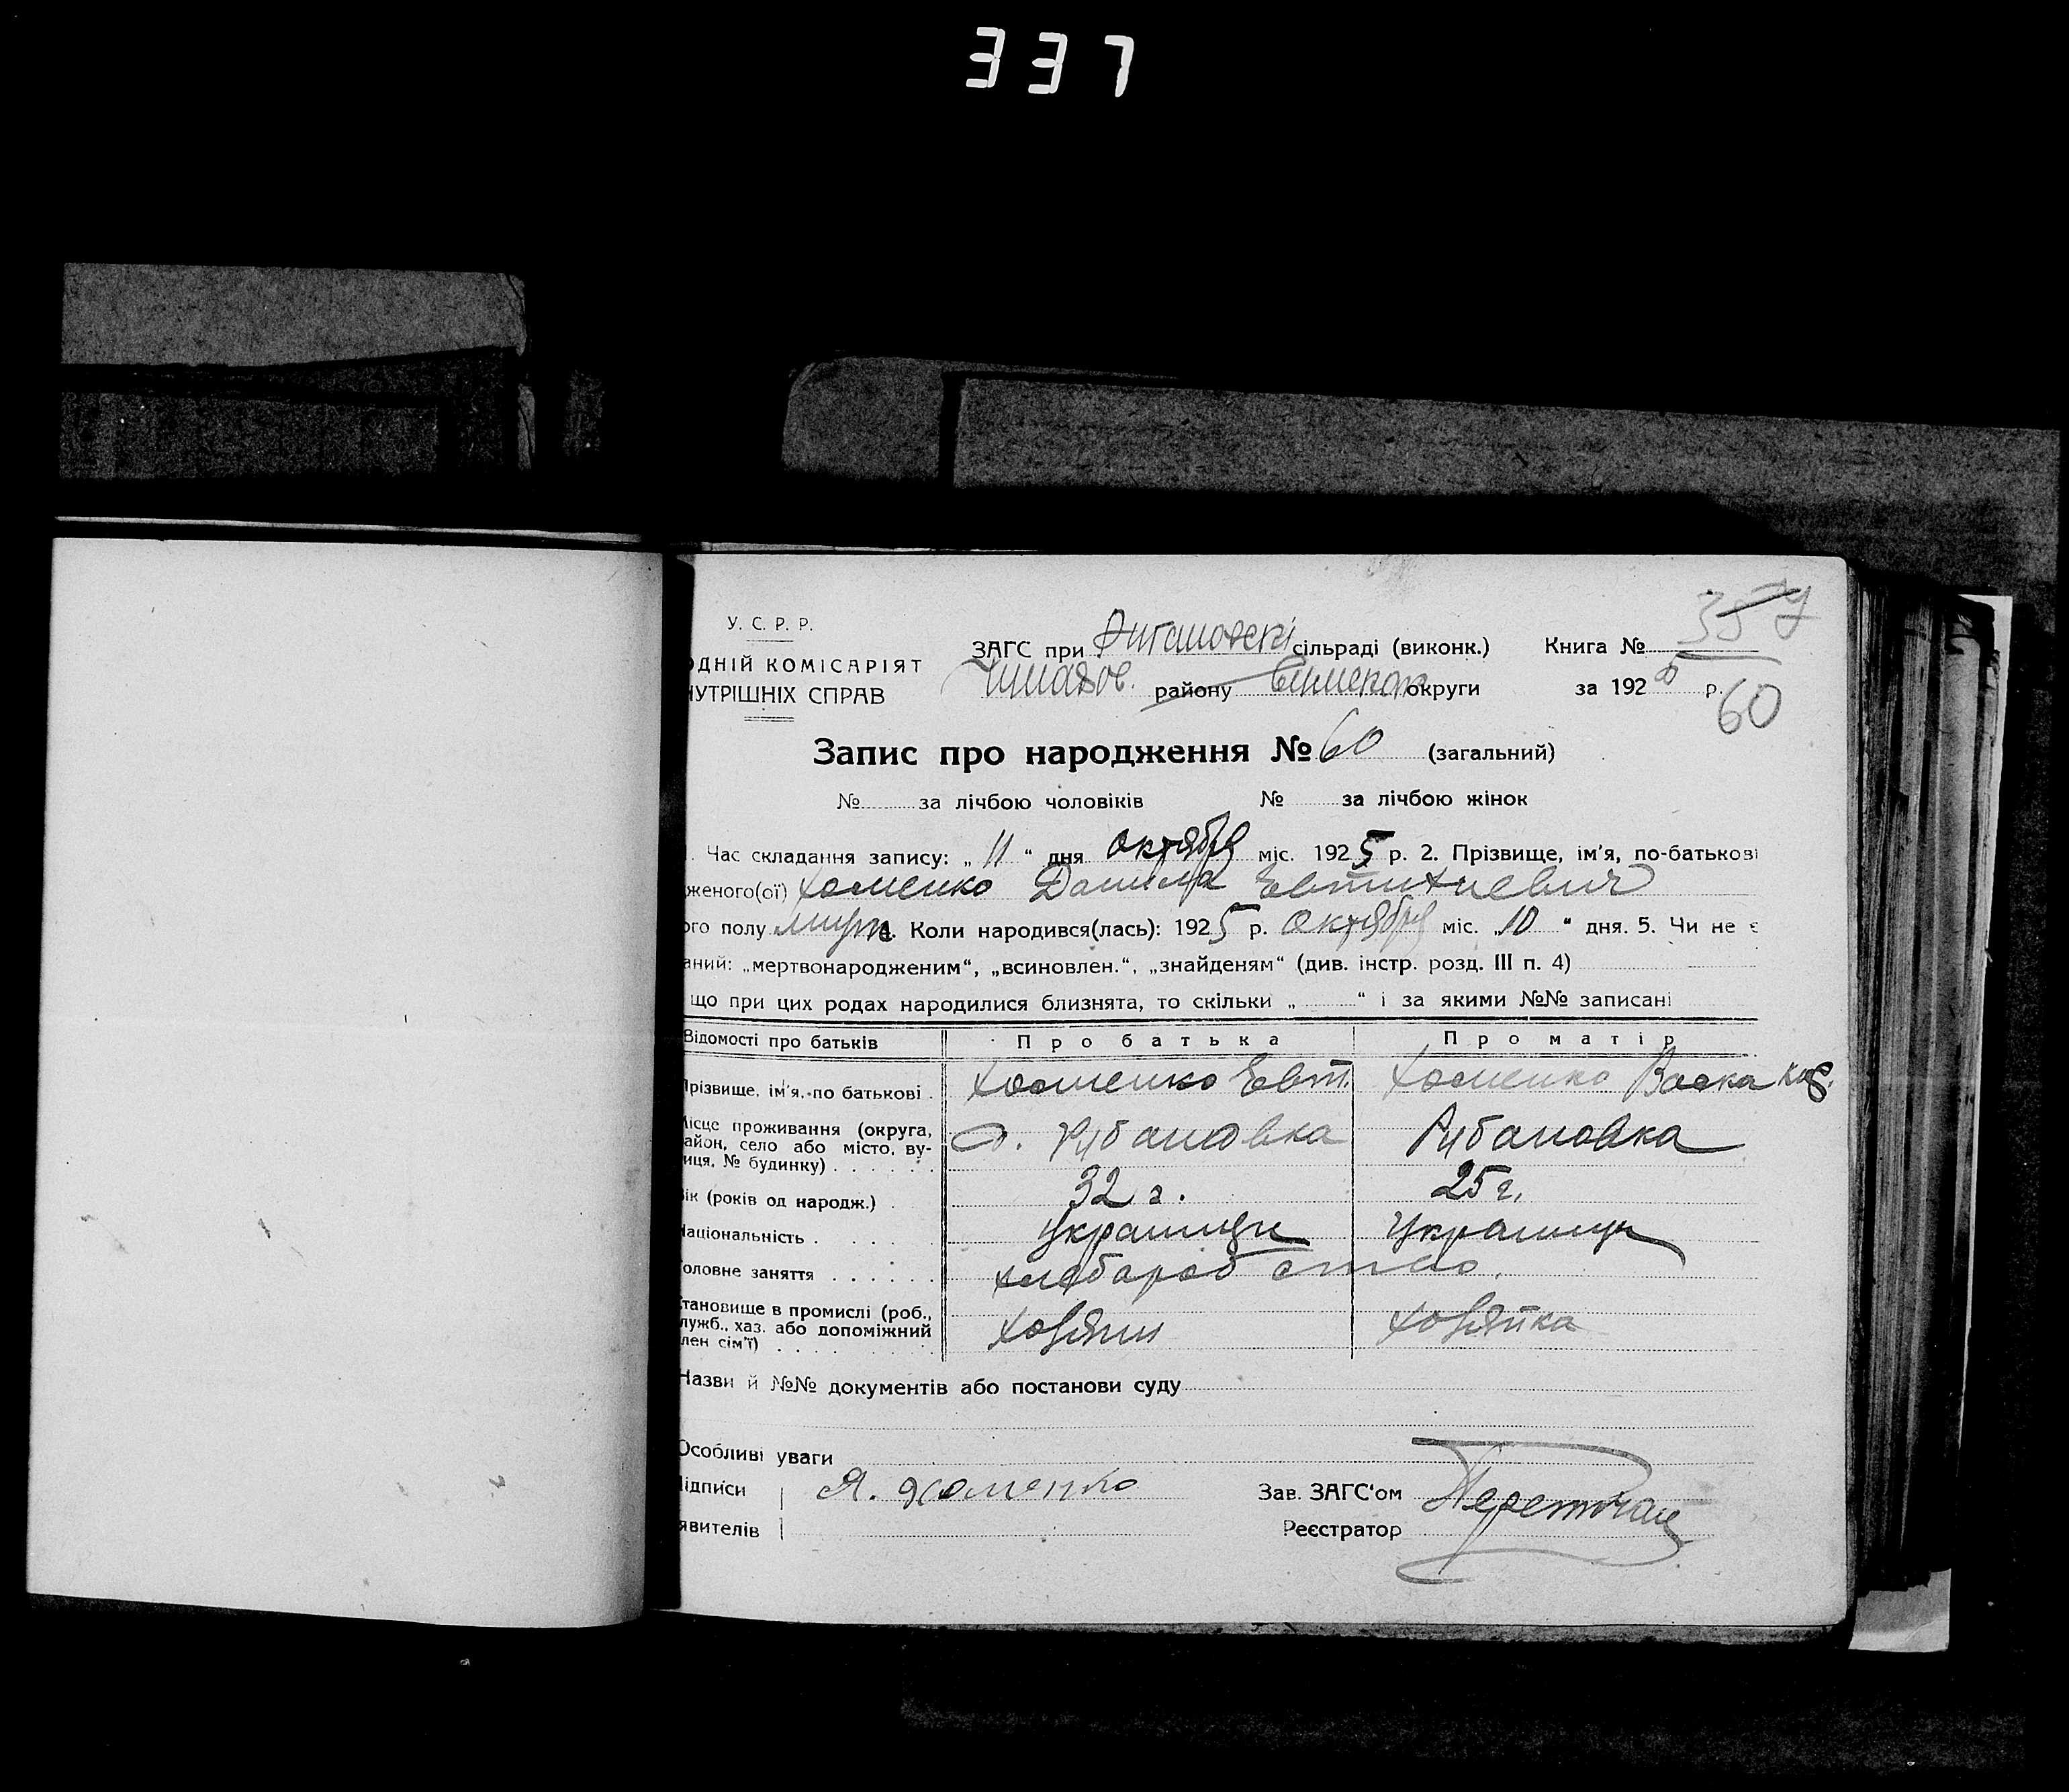 337
357
У. С. Р. Р.
ОДНІЙ КОМІСАРІЯТ
НУТРІШНІХ СПРАВ
ЗАГС при сільраді (виконк.) Книга №
району округи за 192 р.
60
Запис про народження № 60 (загальний)
№ за лічбою чоловіків № за лічбою жінок
Час складання запису: „ 11 “ дня октября міс. 1925 р. 2. Прізвище, ім'я, по-батькові
женого(ої) Хоменко Данила Евтихиевич
ого полу муж. Коли народився(лась): 1925 р. Октября міс. „10 “ дня. 5. Чи не є
аний: „мертвонародженим“, „всиновлен.“, „знайденям“ (див. інстр. розд. III п. 4)
що при цих родах народилися близнята, то скільки „ “ і за якими №№ записані
Відомості про батьків Про батька Про матір
Прізвище, ім'я, по батькові . Хоменко Евт. Хоменко
Місце проживання (округа,
район, село або місто, ву-
лиця, № будинку) . . . . . . Рубановка Рубановка
Вік (років од народж.) . 32 г. 25 г.
Національність . . . . . Украинци Украинци
Головне заняття . . . . . . хлебаробство.
Становище в промислі (роб.,
служб., хаз. або допоміжний
член сім'ї) . . . . . Хозяин Хозяйка
Назви й №№ документів або постанови суду
Особливі уваги
Підписи Я. Хоменко Зав. ЗАГС'ом
явителів Реєстратор